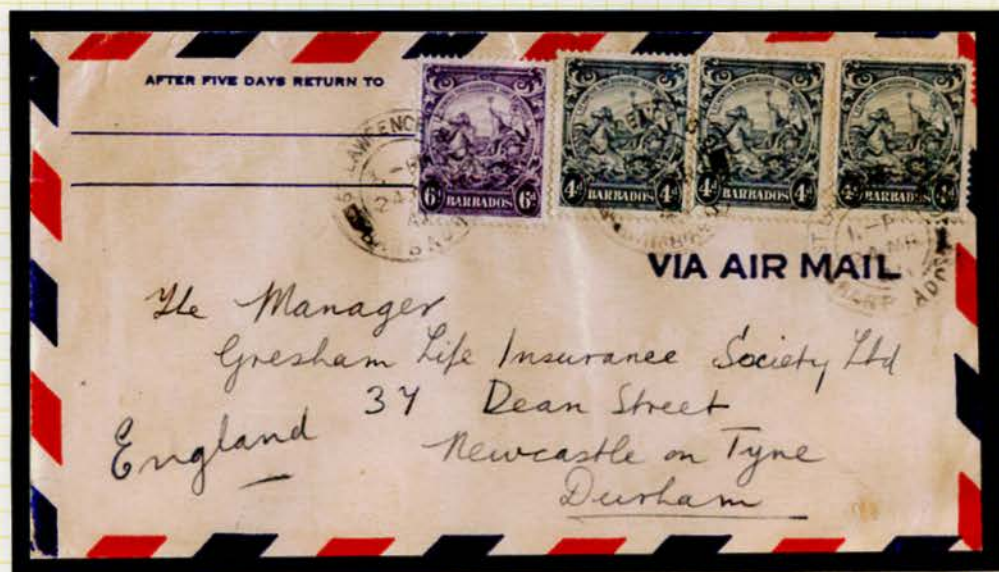 AFTER FIVE DAYS RETURN TO
6d 6d
BARBADOS
4d 4d
BARBADOS
4d 4d
BARBADOS
4d 4d
BARBADOS
VIA AIR MAIL
The Manager
Gresham Life Insurance Society Ltd
37 Dean Street
Newcastle on Tyne
Durham
England